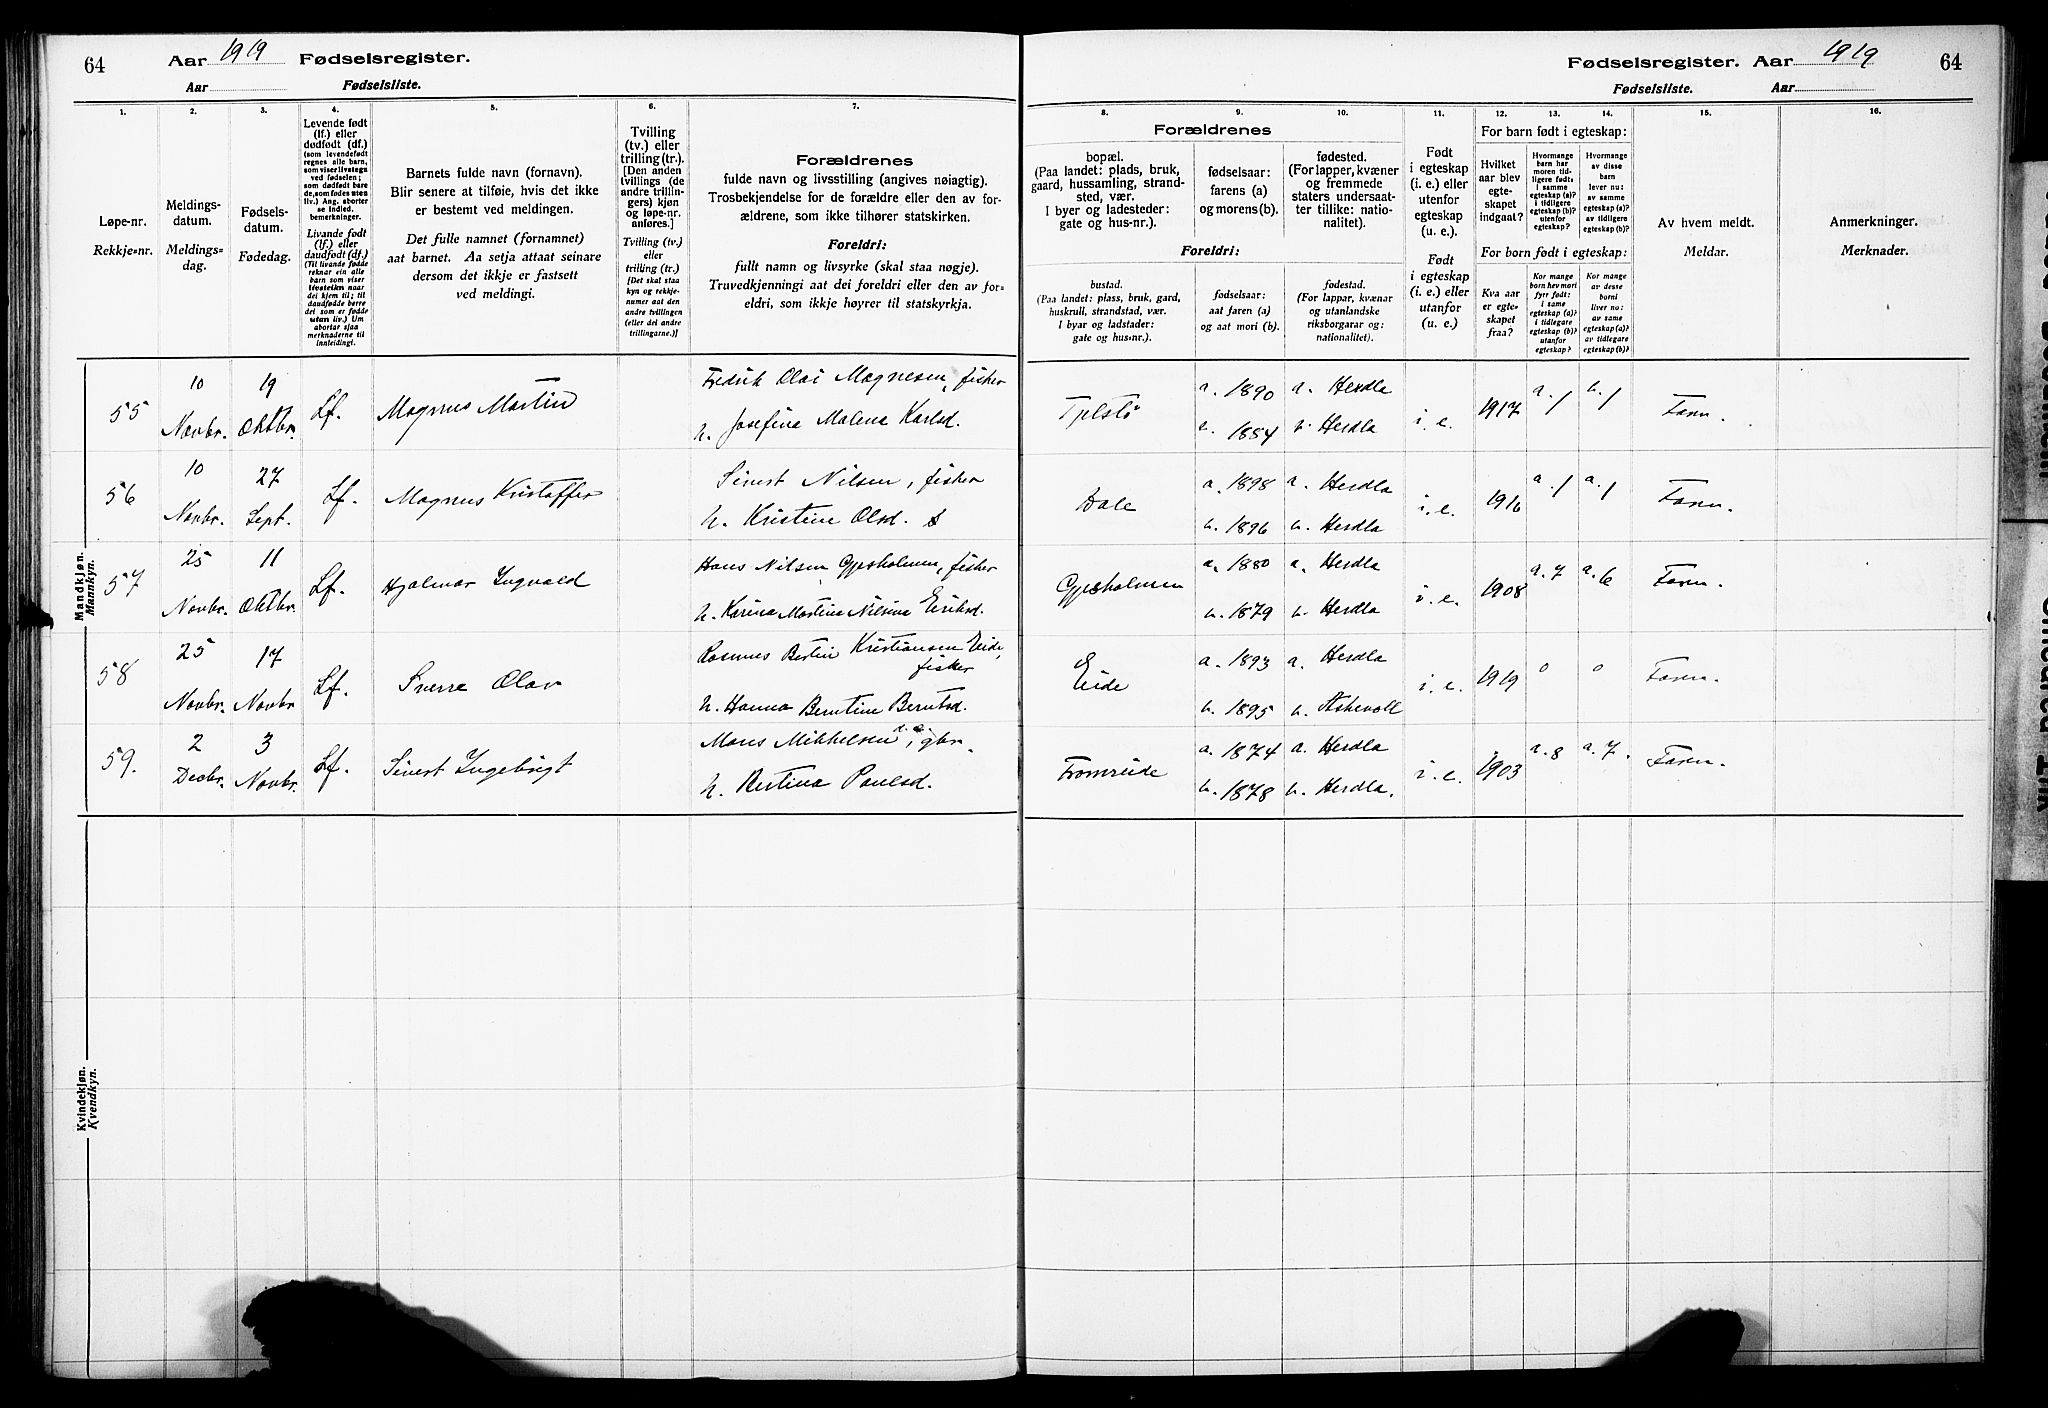 64 Aar 1919 Fødselsregister.
Aar Fødselsliste.
Fødselsregister. Aar 1919 64
Fødselsliste. Aar
1. 2. 3. 4. 5. 6. 7.
Løpe-nr.
Rekkje-nr.
Meldings-
datum.
Meldings-
dag.
Fødsels-
datum.
Fødedag.
Levende født
(lf.) eller
dødfødt (df.)
(som levendefødt
regnes alle barn,
som viser livstegn
ved fødselen;
som dødfødt bare
de, som fødes uten
liv.) Ang. aborter
se indled.
bemerkninger.
Livande født
(lf.) eller
daudfødt (df.)
(Til livande fødde
reknar ein alle
barn som viser
livsteikn naar
dei kjem til; til
daudfødde berre
dei som er fødde
utan liv.) Um
abortar sjaa
merknaderne til
innleidingi.
Barnets fulde navn (fornavn).
Blir senere at tilføie, hvis det ikke
er bestemt ved meldingen.
Det fulle namnet (fornamnet)
aat barnet. Aa setja attaat seinare
dersom det ikkje er fastsett
ved meldingi.
Tvilling
(tv.) eller
trilling (tr.).
[Den anden
tvillings (de
andre trillin-
gers) kjøn
og løpe-nr.
anføres.]
Tvilling (tv.)
eller
trilling (tr.)
[Det skal staa
kyn og rekkje-
numer aat den
andre tvillingen
(eller dei andre
trillingarne.)]
Forældrenes
fulde navn og livsstilling (angives nøiagtig).
Trosbekjendelse for de forældre eller den av for-
ældrene, som ikke tilhører statskirken.
Foreldri:
fullt namn og livsyrke (skal staa nøgje).
Truvedkjenningi aat dei foreldri eller den av for-
eldri, som ikkje høyrer til statskyrkja.
8. 9. 10. 11. 12. 13. 14. 15. 16.
Forældrenes
bopæl.
(Paa landet: plads, bruk,
gaard, hussamling, strand-
sted, vær.
I byer og ladesteder:
gate og hus-nr.).
fødselsaar:
farens (a)
og morens (b).
fødested.
(For lapper, kvæner
og fremmede
staters undersaat-
ter tillike: natio-
nalitet).
Foreldri:
bustad.
(Paa landet: plass, bruk, gard,
huskrull, strandstad, vær.
I byar og ladstader:
gate og hus-nr.).
fødselsaar:
aat faren (a)
og aat mori (b).
fødestad.
(For lappar, kvænar
og utanlandske
riksborgarar og:
nationalitet).
Født
i egteskap
(i. e.) eller
utenfor
egteskap
(u. e.).
Født
i egteskap
(i. e.) eller
utanfor
(u. e.)
For barn født i egteskap:
Hvilket
aar blev
egte-
skapet
indgaat?
Hvormange
barn har
moren tid-
ligere født:
i samme
egteskap (a)?
i tidligere
egteskap (b)?
utenfor
egteskap?
Hvormange
av disse
barn
lever nu:
av samme
egteskap (a)?
av tidligere
egteskap (b)?
For born født i egteskap:
Kva aar
er egte-
skapet
fraa?
Kor mange
born hev mori
fyrr født:
i same
egteskap (a)?
i tidlegare
egteskap (b)?
utanfor
egteskap?
Kor mange
av desse
borni
liver no:
av same
egteskap (a)?
av tidlegare
egteskap (b)?
Av hvem meldt.
Meldar.
Anmerkninger.
Merknader.
Mandkjøn.
Mannkyn.
55 10 Novbr. 19 Oktbr. Lf. Magnus Martin Fredrik Olai Magnesen, fisker
h. Josefina Malena Karlsd.
Tjelstø a. 1890 a. Herdla i. e. 1917 a. 1 a. 1 Faren.
b. 1884 b. Herdla
56 10 Novbr. 27 Sept. Lf. Magnus Kristoffer Sivert Nilsen, fisker
h. Kristine Olsd.
Dale a. 1898 a. Herdla i. e. 1916 a. 1 a. 1 Faren.
b. 1896 b. Herdla
57 25 Novbr. 11 Oktbr. Lf. Hjalmar Ingvald Hans Nilsen Gjesholmen, fisker
h. Karina Martine Nilsine Eriksd.
Gjesholmen a. 1880 a. Herdla i. e. 1908 a. 7 a. 6 Faren.
b. 1879 b. Herdla
58 25 Novbr. 17 Novbr. Lf. Sverre Olav Rasmus Bertin Kristiansen Eide,
fisker
h. Hanna Berntine Berntsd.
Eide a. 1893 a. Herdla i. e. 1919 0 0 Faren.
b. 1895 b. Askevoll
59. 2 Decbr. 3 Novbr. Lf. Sivert Ingebrigt Mons Mikkelsen, gbr.
h. Bertina Paulsd.
Fromreide a. 1874 a. Herdla i. e. 1903 a. 8 a. 7. Faren.
b. 1878 b. Herdla.
Kvindekjøn.
Kvendkyn.